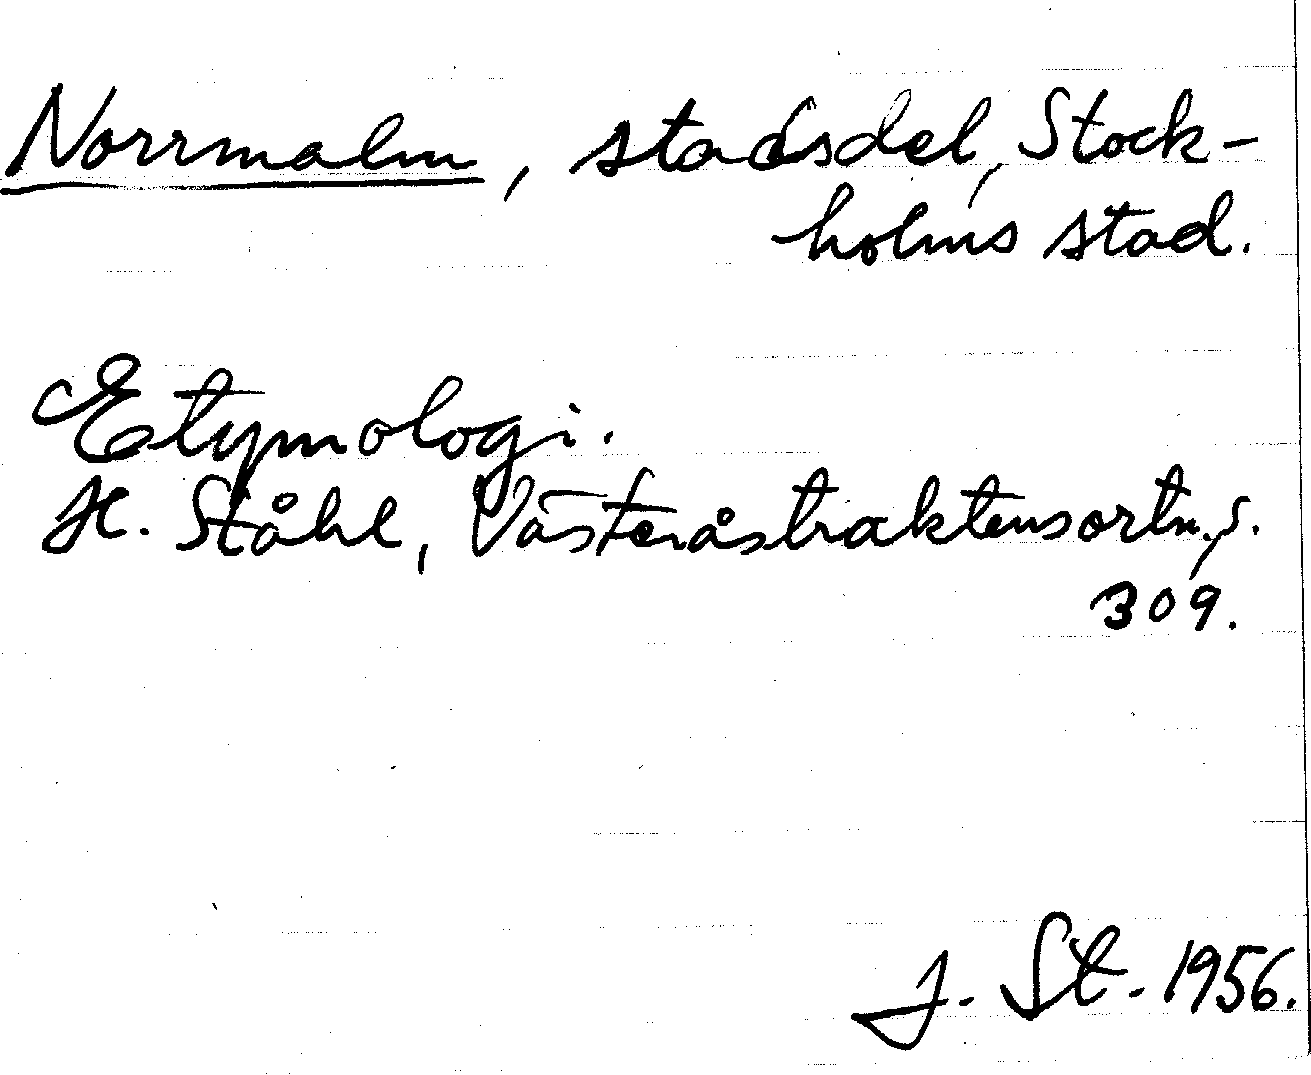 Norrmalm, stadsdel, Stock-
holms stad.
Etymologi.
H. Ståhl, Västeråstraktens ortn., s.
309.
J. St. 1956.